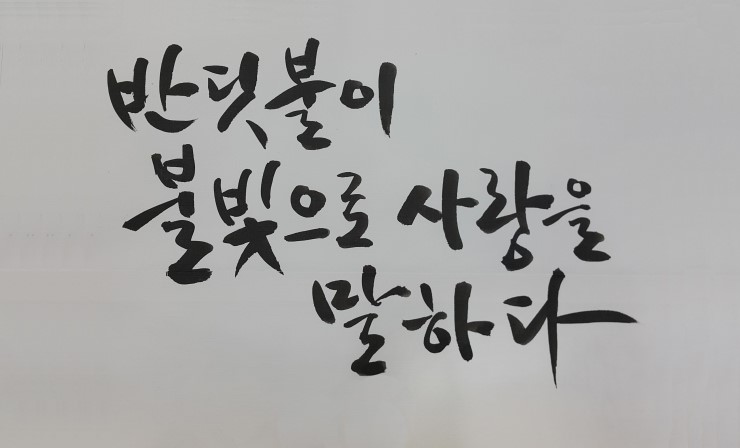 반딧불이
불빛으로 사랑을
말하다